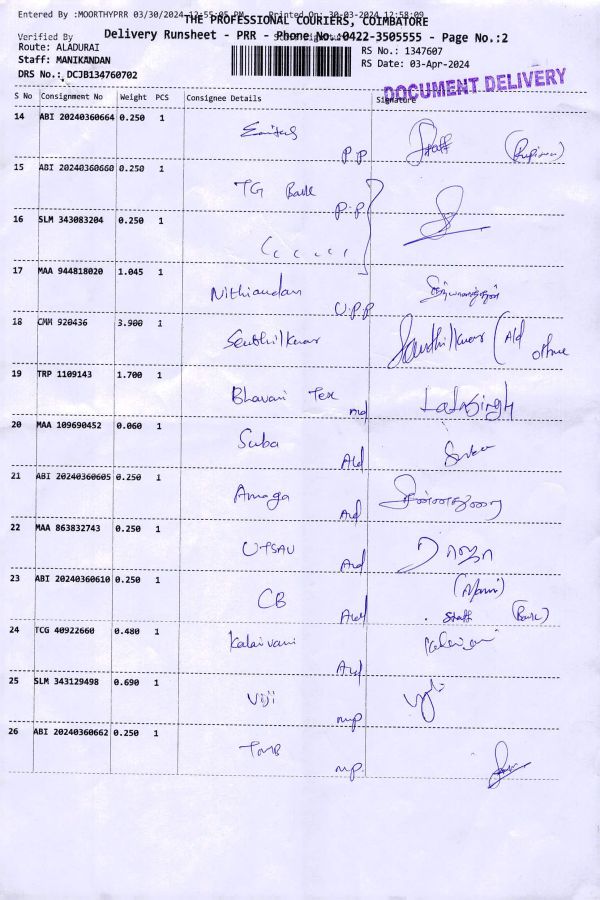 Entered By :MOORTHYPRR 03/30/2024 12:55:05 PM Printed On: 30-03-2024 12:58:09
THE PROFESSIONAL COURIERS, COIMBATORE
Verified By
Delivery Runsheet - PRR - Phone No.:0422-3505555 - Page No.:2
Route: ALADURAI
RS No.: 1347607
Staff: MANIKANDAN
RS Date: 03-Apr-2024
DRS No.: DCJB134760702
DOCUMENT DELIVERY
S No Consignment No Weight PCS Consignee Details Signature
14 ABI 20240360664 0.250 1
P.P Staff
15 ABI 20240360660 0.250 1
TG Bank
P.P
16 SLM 343083204 0.250 1
17 MAA 944818020 1.045 1
Nithiandan
U.P.P
18 CMM 920436 3.900 1
Senthilkumar Senthilkumar (Ald
19 TRP 1109143 1.700 1
Bhavani Tex
LalaSingh
20 MAA 109690452 0.060 1
Suba
Ald
21 ABI 20240360605 0.250 1
Amaga
Ald சின்னதுரை
22 MAA 863832743 0.250 1
UTSAV
Ald ராஜா
23 ABI 20240360610 0.250 1
CB
Ald Staff (Bank)
24 TCG 40922660 0.480 1
Kalaivani
Ald
25 SLM 343129498 0.690 1
Viji
mp
26 ABI 20240360662 0.250 1
TMB
mp